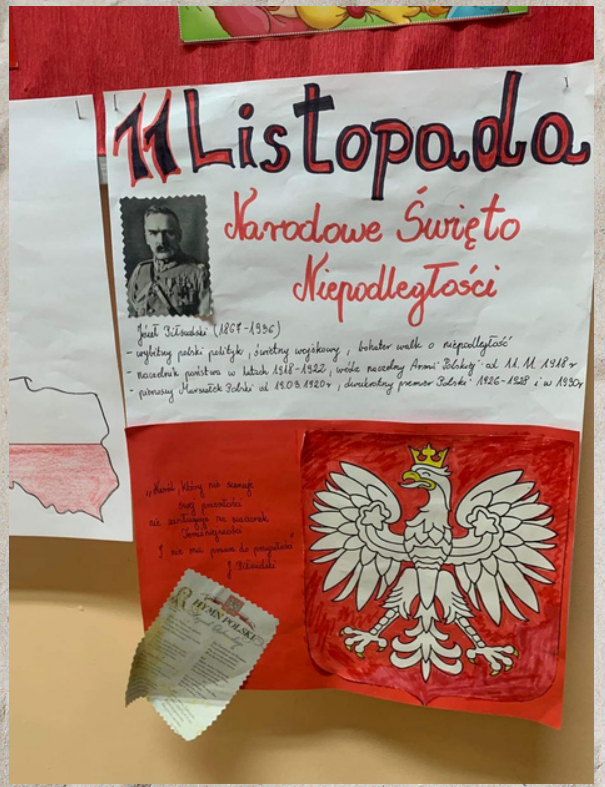 11 Listopada
Narodowe Święto
Niepodległości
Józef Piłsudski (1867-1936)
- wybitny polski polityk, świetny wojskowy, bohater walk o niepodległość
- naczelnik państwa w latach 1918-1922, wódz naczelny Armii Polskiej od 11.11.1918 r
- pierwszy Marszałek Polski od 19.03.1920 r, dwukrotny premier Polski 1926-1928 i w 1930r
„Naród, który nie szanuje
swej przeszłości
nie zasługuje na szacunek
Teraźniejszości
I nie ma prawa do przyszłości"
J. Piłsudski
HYMN POLSKI